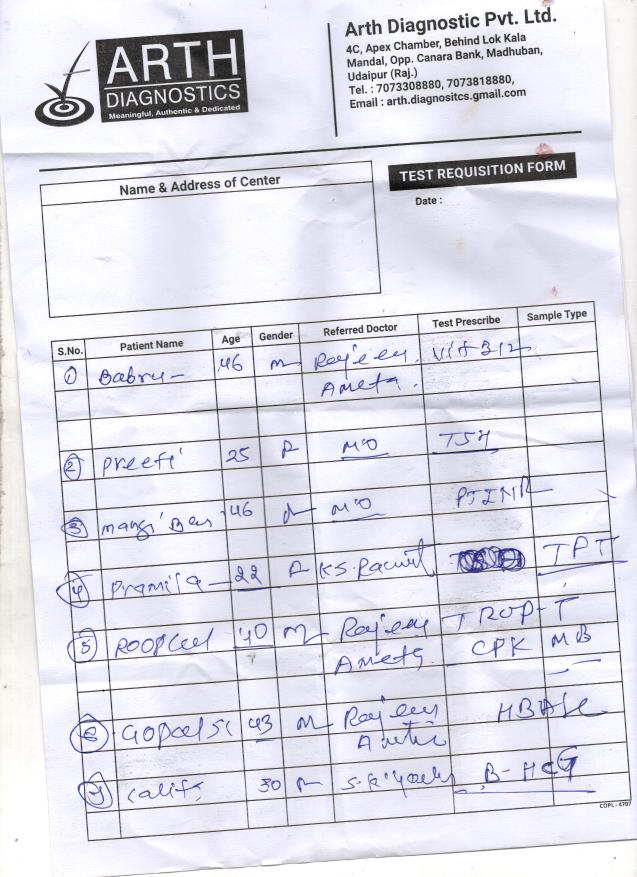 ARTH
DIAGNOSTICS
Meaningful, Authentic & Dedicated
Arth Diagnostic Pvt. Ltd.
4C, Apex Chamber, Behind Lok Kala
Mandal, Opp. Canara Bank, Madhuban,
Udaipur (Raj.)
Tel. : 7073308880, 7073818880,
Email : arth.diagnositcs.gmail.com
Name & Address of Center
TEST REQUISITION FORM
Date :
S.No. Patient Name Age Gender Referred Doctor Test Prescribe Sample Type
1 Babru - 46 m Rajeev Vit B12
Ameta
2 Preeti 25 F MO TSH
3 46 MO PTINR
4 Pramila - 22 F K.S. TPT
5 Roop 40 m Rajeev TROP-T
Ameta CPK MB
6 Gopal 43 m Rajeev HBA1c
7 Lalit 30 F B-HCG
COPL - 4707